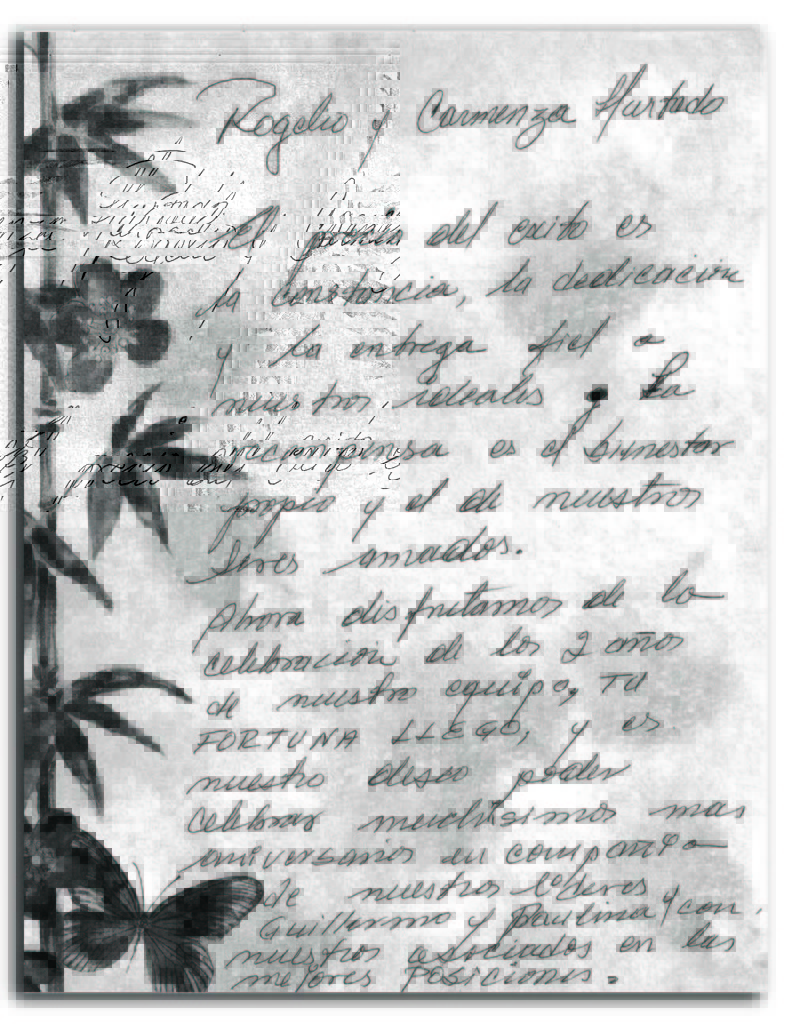 Rogelio y Carmenza Hurtado
El precio del exito es
la constancia, la dedicación
y la entrega fiel a
nuestros ideales. La
recompensa es el bienestar
propio y el de nuestros
seres amados.
Ahora disfrutamos de la
celebracion de los 2 años
de nuestro equipo, TU
FORTUNA LLEGO, y es
nuestro deseo poder
celebrar muchisimos mas
aniversarios en compañia
de nuestros lideres
Guillermo y Paulina y con
nuestros asociados en las
mejores POSICIONES.